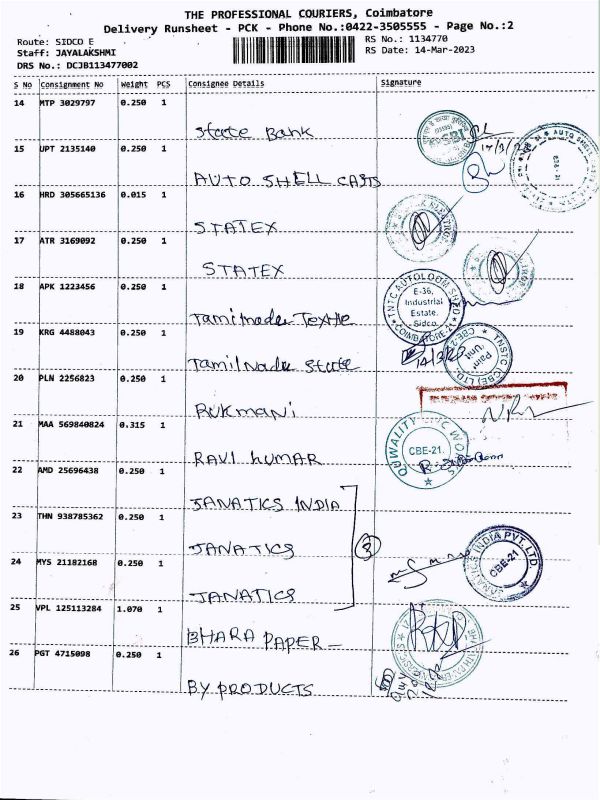 THE PROFESSIONAL COURIERS, Coimbatore
Delivery Runsheet - PCK - Phone No.:0422-3505555 - Page No.:2
Route: SIDCO E
RS No.: 1134770
Staff: JAYALAKSHMI
RS Date: 14-Mar-2023
DRS No.: DCJB113477002
S No Consignment No Weight PCS Consignee Details Signature
14 MTP 3029797 0.250 1
State Bank
SBI
15 UPT 2135140 0.250 1
AUTO SHELL CASTS
AUTO SHELL
CBE-21
16 HRD 305665136 0.015 1
STATEX
17 ATR 3169092 0.250 1
STATEX
18 APK 1223456 0.250 1
Tamilnadu Textile
TNTC AUTOLOOM SHED
E-36,
Industrial
Estate.
Sidco.
COIMBATORE-2
19 KRG 4488043 0.250 1
Tamilnadu State
TNSTC (CBE) LTD.
Paint
Unit
20 PLN 2256823 0.250 1
RUKMANI
21 MAA 569840824 0.315 1
RAVI KUMAR
QUWALITY CNC WORKS
CBE-21.
22 AMD 25696438 0.250 1
JANATICS INDIA
23 THN 938785362 0.250 1
JANATICS
3
24 MYS 21182168 0.250 1
JANATICS
JANATICS INDIA PVT. LTD.
CBE-21
25 VPL 125113284 1.070 1
BHARA PAPER
26 PGT 4715098 0.250 1
BY PRODUCTS